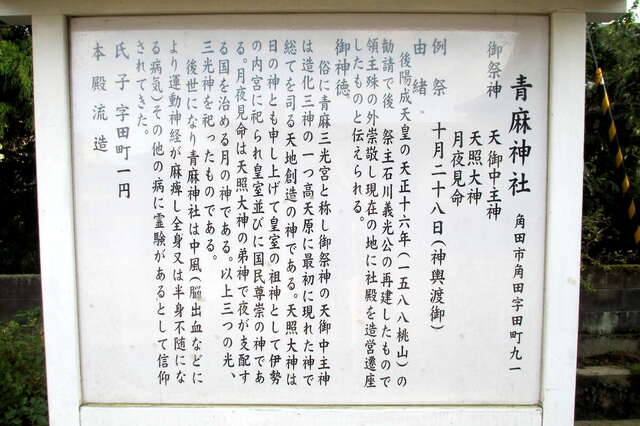 青麻神社 角田市角田字田町九一
御祭神 天御中主神
天照大神
月夜見命
例祭 十月二十八日(神輿渡御)
由緒
後陽成天皇の天正十六年(一五八八桃山)の
勧請で後 祭主石川義光公の再建したもので
領主殊の外崇敬し現在の地に社殿を造営遷座
したものと伝えられる。
御神徳
俗に青麻三光宮と称し御祭神の天御中主神
は造化三神の一つ高天原に最初に現れた神で
総てを司る天地創造の神である。天照大神は
日の神とも申し上げて皇室の祖神として伊勢
の内宮に祀られ皇室並びに国民尊崇の神であ
る。月夜見命は天照大神の弟神で夜が支配す
る国を治める月の神である。以上三つの光、
三光神を祀ったものである。
後世になり青麻神社は中風(脳出血などに
より運動神経が麻痺し全身又は半身不随にな
る病気)その他の病に霊験があるとして信仰
されてきた。
氏子 字田町一円
本殿流造